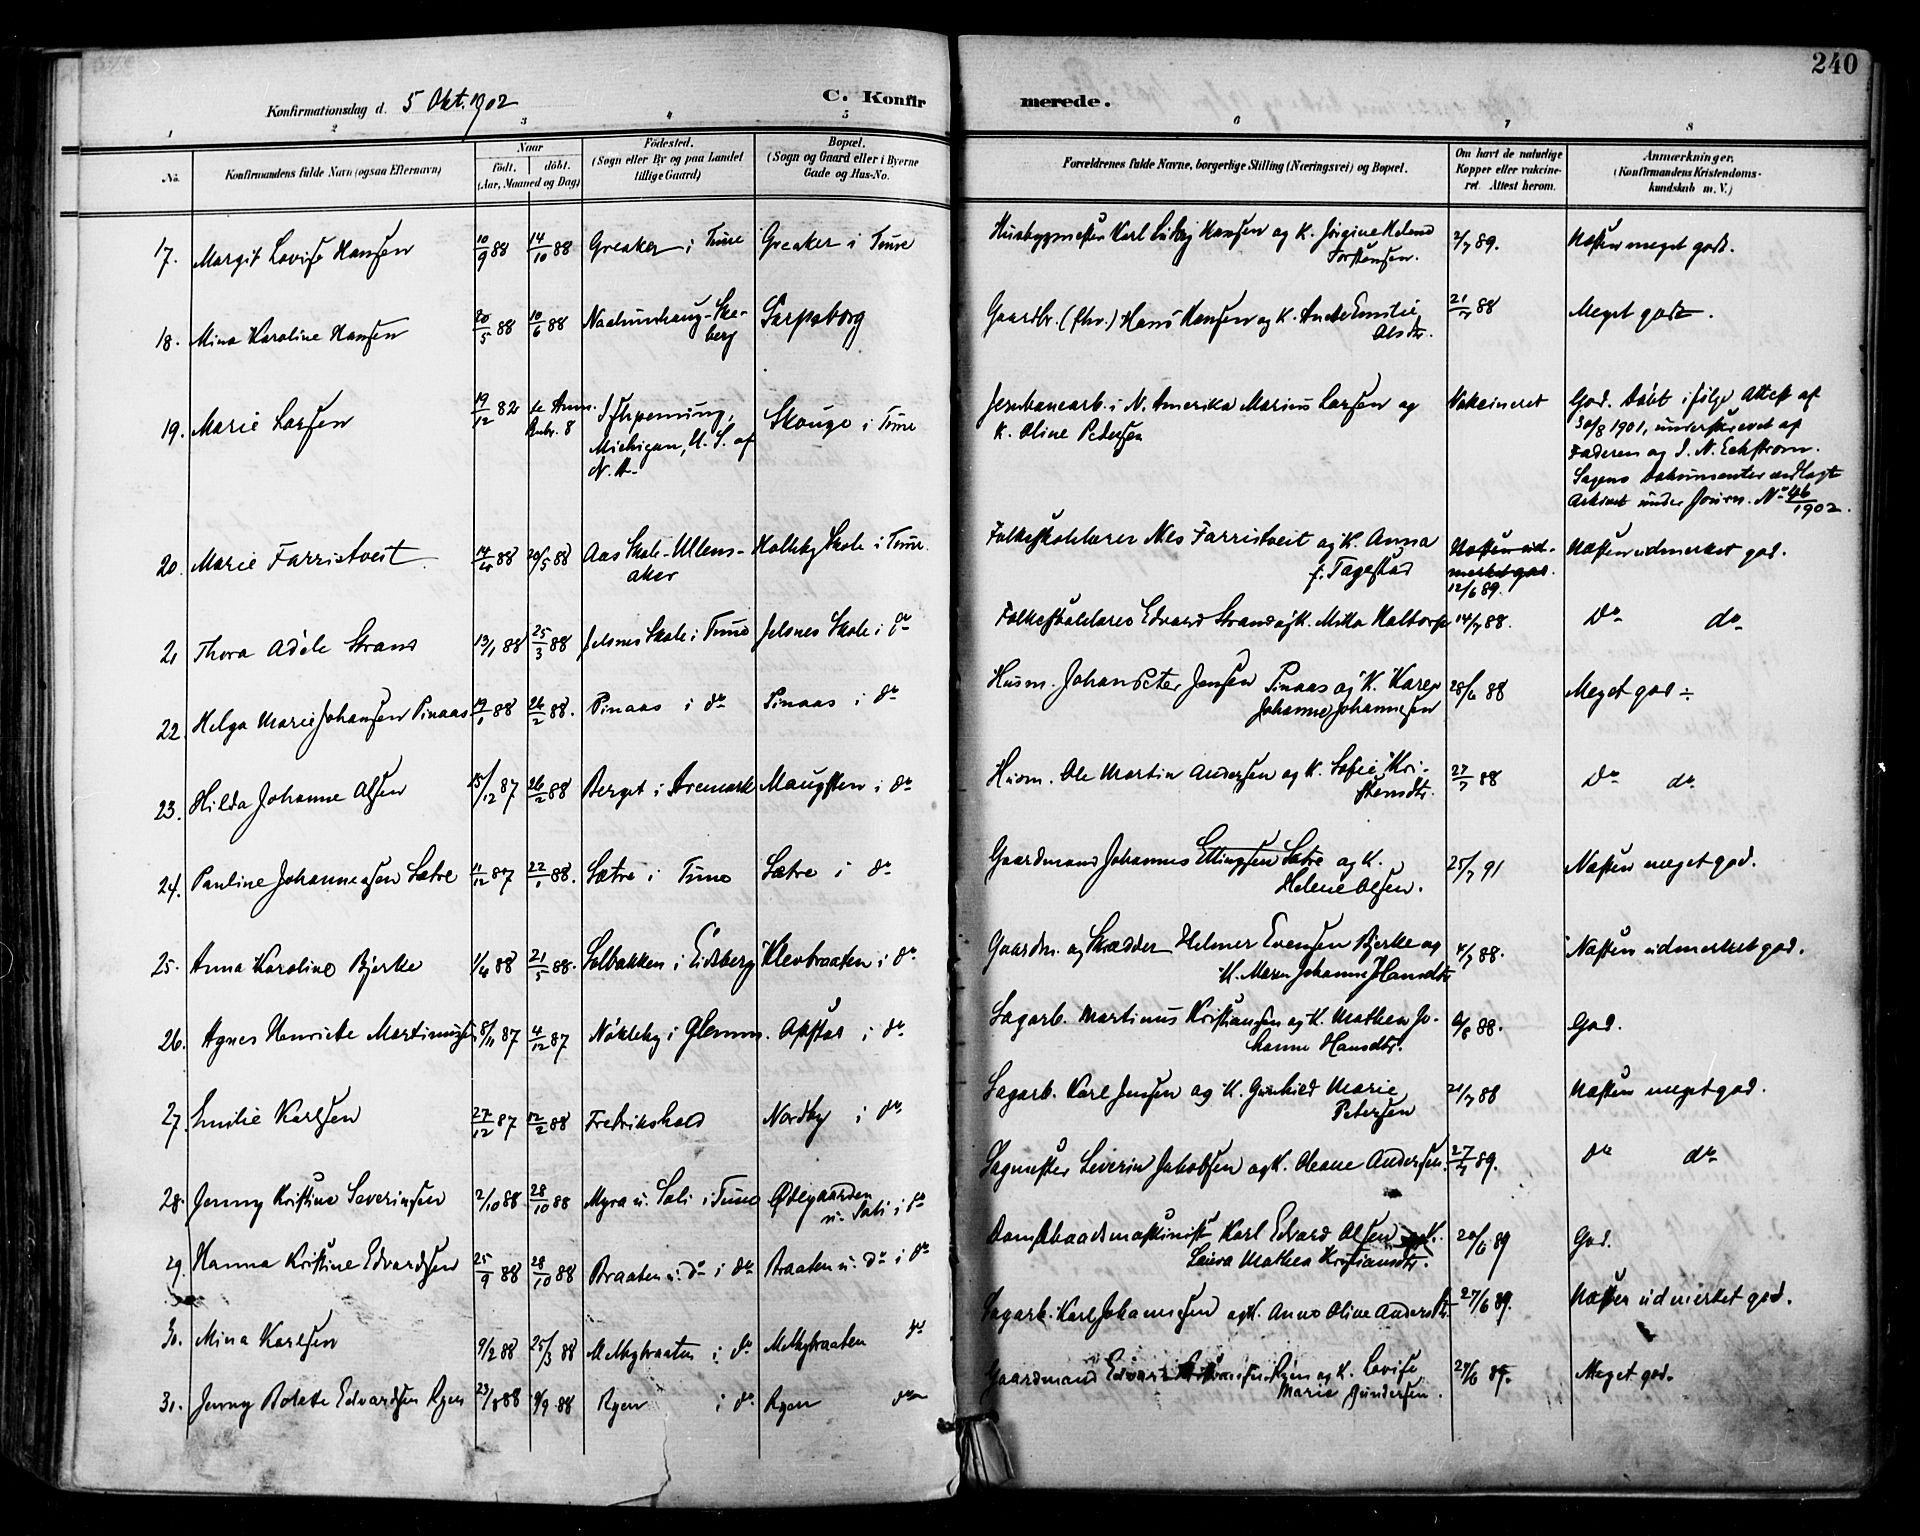 240
Konfirmationsdag d. 5 Okt. 1902
C. Konfirmerede.
1 2 3 4 5 6 7 8
No. Konfirmandens fulde Navn (ogsaa Efternavn)
Naar
født. døbt.
(Aar, Maaned og Dag)
Fødested.
(Sogn eller By og paa Landet
tillige Gaard)
Bopæl.
(Sogn og Gaard eller i Byerne
Gade og Hus-No.
Forældrenes fulde Navne, borgerlige Stilling (Næringsvei) og Bopæl.
Om havt de naturlige
Kopper eller vakcine-
ret. Attest herom.
Anmærkninger.
(Konfirmandens Kristendoms-
kundskab m. V.)
17. Margit Lovise Hansen 10/9 88 14/10 88 Greaker i Tune Greaker i Tune Husbygmester Karl Hansen og K. Jørgine Helene Torstensen. 2/7 89. Næsten meget god.
18. Mina Karoline Hansen 20/5 88 10/6 88 Skeberg Sarpsborg Gaardbr. (fhv.) Hans Hansen og K. Emilie Olsdtr. 21/7 88 Meget god.
19. Marie Larsen 19/12 82 se Anm. Rubr. 8 Ishpeming, Michigan, U. S. af N. A. Skouge i Tune Jernbanearb. i N. Amerika Marius Larsen og K. Oline Pedersen Vakcineret God. Døbt ifølge Attest af
30/8 1901, underskrevet af
Faderen og I. N. Eckstrøm.
Sagens Dokumenter vedlagt
Arkivet under Journ. No 46/1902.
20. Marie Farristveit 14/4 88 20/5 88 Aas Skole - Ullensaker Holleby Skole i Tune. Folkeskolelærer Nils Farristveit og K. Anna f. Tagestad Næsten udmerket god. 12/6 89. Næsten udmerket god.
21 Thora Adele Strand 13/1 88 25/3 88 Jelsnes Skole i Tune Jelsnes Skole i do Folkeskolelærer Edvard Strand og K. Mille Haltorp 14/7 88. do do
22. Helga Marie Johansen Pinaas 19/1 88 26/2 88. Pinaas i do Pinaas i do Husm. Johan Peter Jensen Pinaas og K. Karen Johanne Johannesen 28/6 88 Meget god ÷
23. Hilda Johanne Olsen 15/12 87 26/2 88 Berget i Aremark Maugsten i do Husm. Ole Martin Andersen og K. Sofie Kristensdtr. 27/7 88 do do
24. Pauline Johannesen Sætre 11/12 87 22/1 88. Sætre i Tune Sætre i do Gaardmand Johannes Ellingsen Sætre og K. Helene Olsen. 25/7 91 Næsten meget god.
25. Anna Karoline Bjerke 1/4 88 21/5 88. Solbakken i Eidsberg Klevbraaten i do Gaardm. og Skrædder Helmer Evensen Bjerke og K. Maren Johanne Hansdtr 4/7 88. Næsten udmerket god.
26. Agnes Henriette Martinusen 8/11 87 4/12 87 Nökleby i Glemm. Opstad i do Sagarb. Martinus Kristiansen og K. Mathea Johanne Hansdtr. 6/8 88. God.
27. Emilie Karlsen 27/12 87 12/2 88 Fredrikshald Nordby i do Sagarb. Karl Jensen og K. Gunhild Marie Petersen 21/7 88 Næsten meget god.
28. Jenny Kristine Severinsen 2/10 88 28/10 88 Myra u. Soli i Tune Ødegaarden u. Soli i do Sagmester Severin Jakobsen og K. Oleane Andersen. 27/7 89. do do
29. Hanna Kristine Edvardsen 25/9 88 28/10 88 Braaten u. do i do Braaten u. do i do Dampbaadsmaskinist Karl Edvard Olsen og K. Laura Mathea Kristiansdtr. 20/6 89 God.
30. Mina Karlsen 9/2 88 25/3 88 Melkybraaten i do Melkybraaten do Sagarb. Karl Johannesen og K. Anne Oline Andersdtr 27/6 89. Næsten udmerket god.
31. Jenny Bolette Edvardsen Ryen 23/8 88 9/9 88 Ryen i do Ryen do Gaardmand Edvard Ryen og K. Lovise Marie Gundersen. 27/6 89. Meget god.